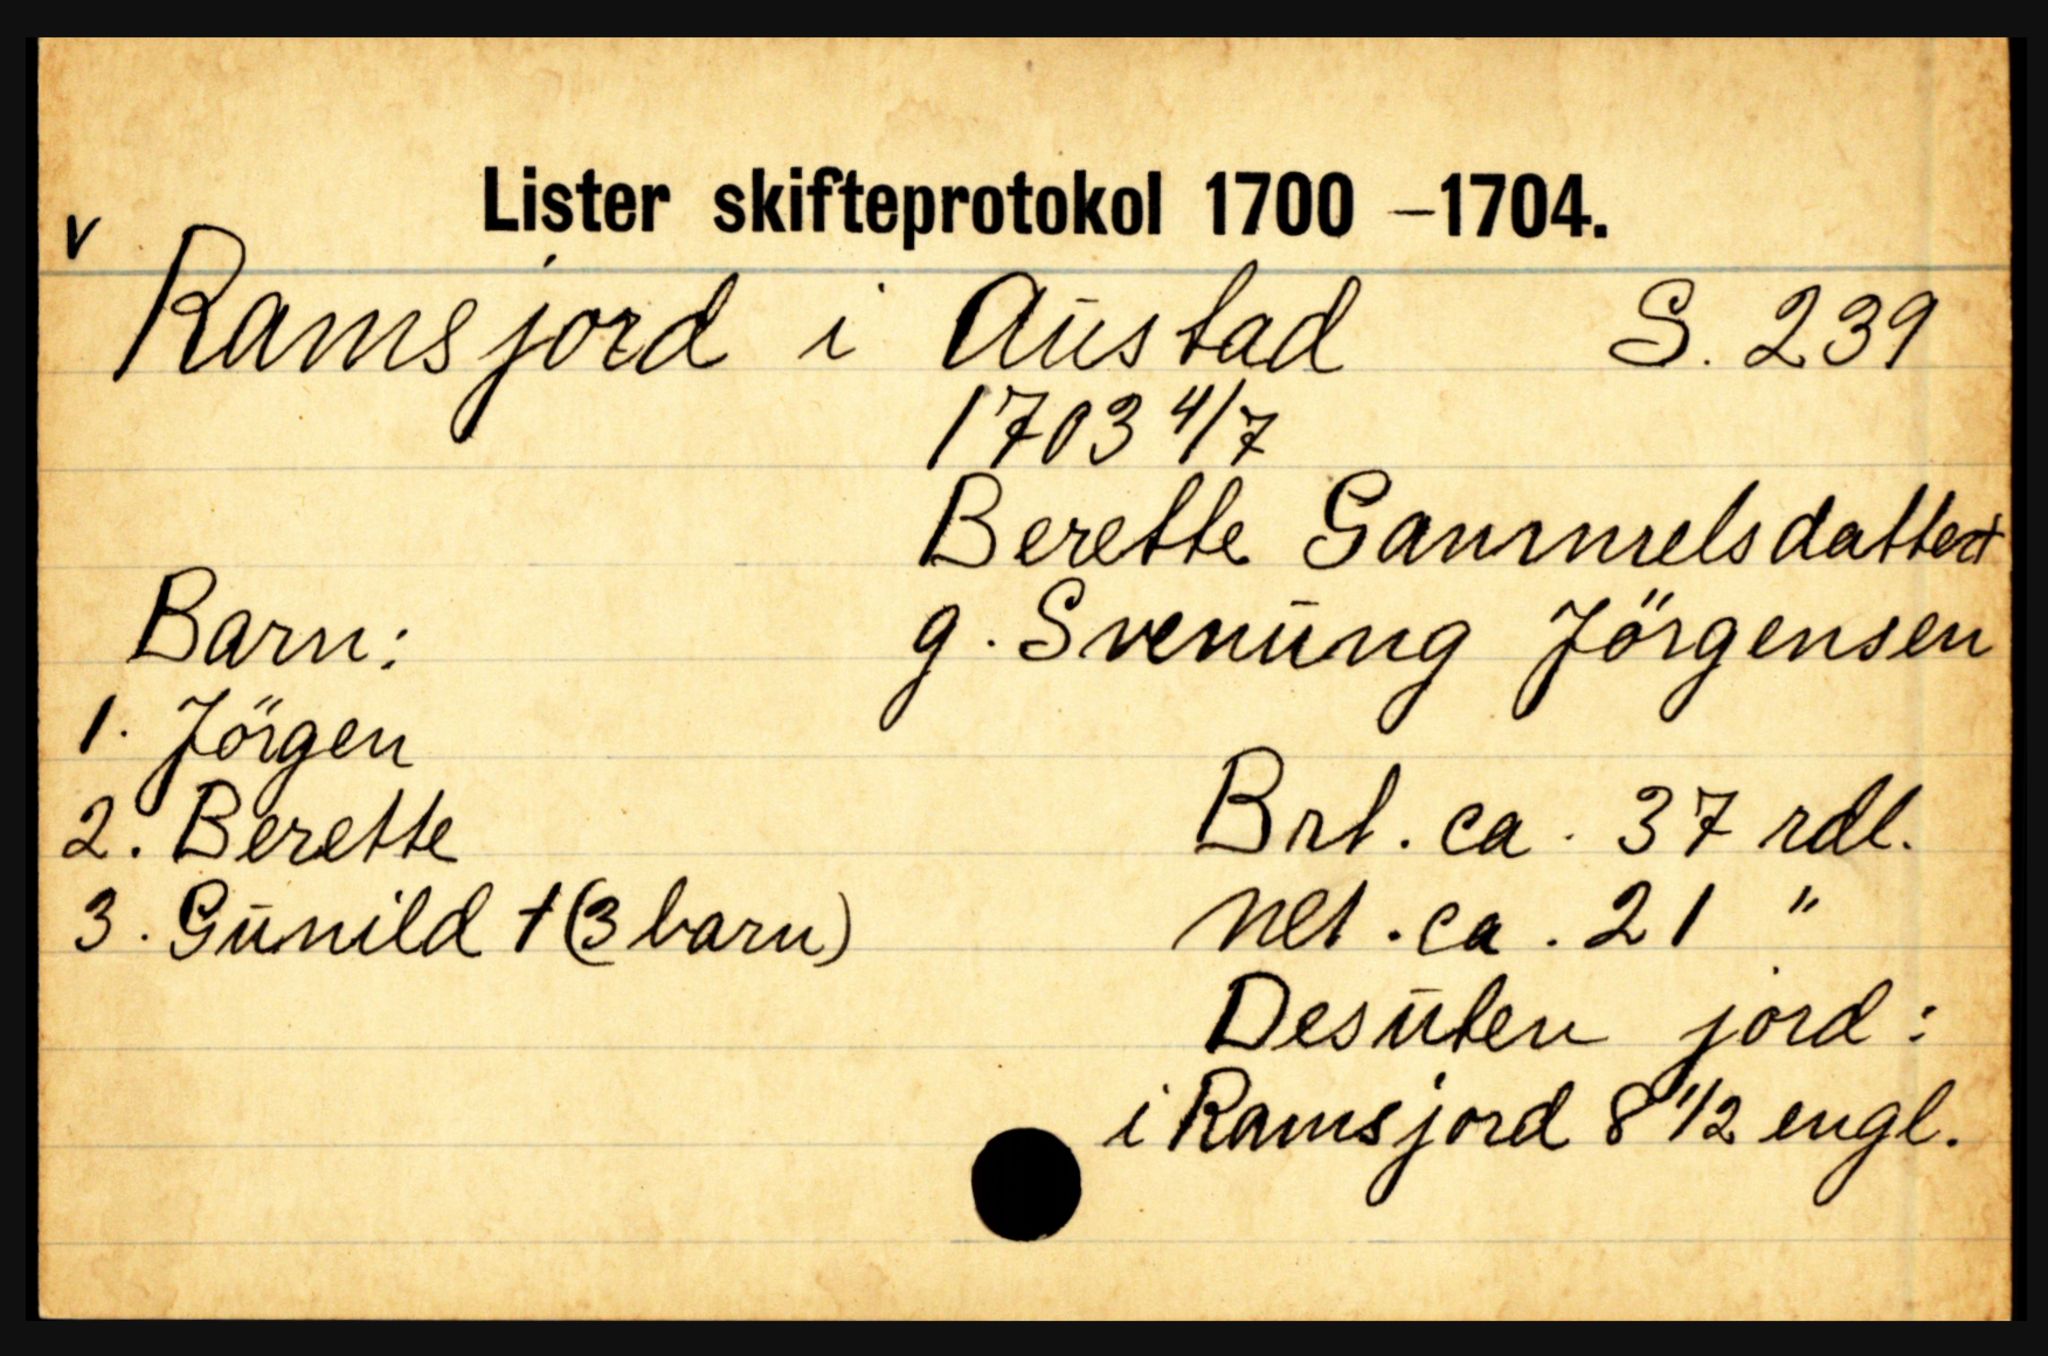 Lister skifteprotokol 1700 – 1704.
v
Ramsjord i Austad S. 239
1703 4/7
Berette Gammelsdatter†
g. Svenung Jörgensen
Barn:
1. Jörgen
2. Berette
3. Gunild † (3 barn)
Brt. ca. 37 rdl.
Net. ca. 21 "
Desuten jord:
i Ramsjord 8 1/2 engl.